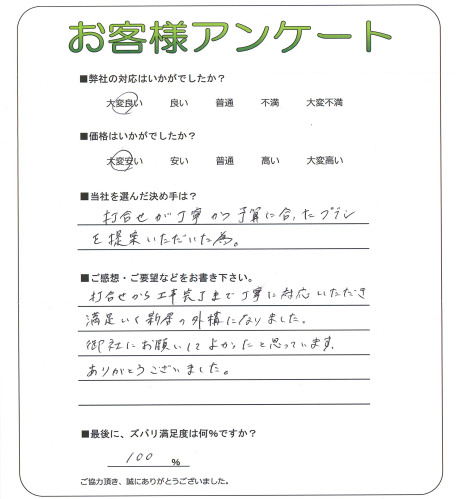 お客様アンケート
■弊社の対応はいかがでしたか？
大変良い 良い 普通 不満 大変不満
■価格はいかがでしたか？
大変安い 安い 普通 高い 大変高い
■当社を選んだ決め手は？
打合せが丁寧かつ予算に合ったプラン
を提案いただいた為。
■ご感想・ご要望などをお書き下さい。
打合せから工事完了まで丁寧に対応いただき
満足いく新居の外構になりました。
御社にお願いしてよかったと思っています.
ありがとうございました。
■最後に、ズバリ満足度は何%ですか？
100 %
ご協力頂き、誠にありがとうございました。